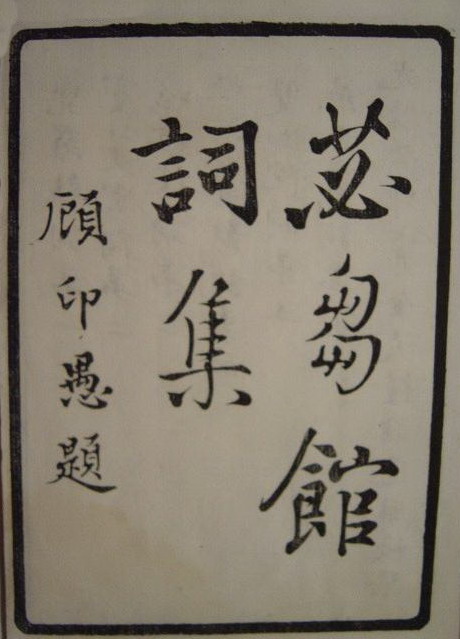 苾芻館
詞集
顧印愚題